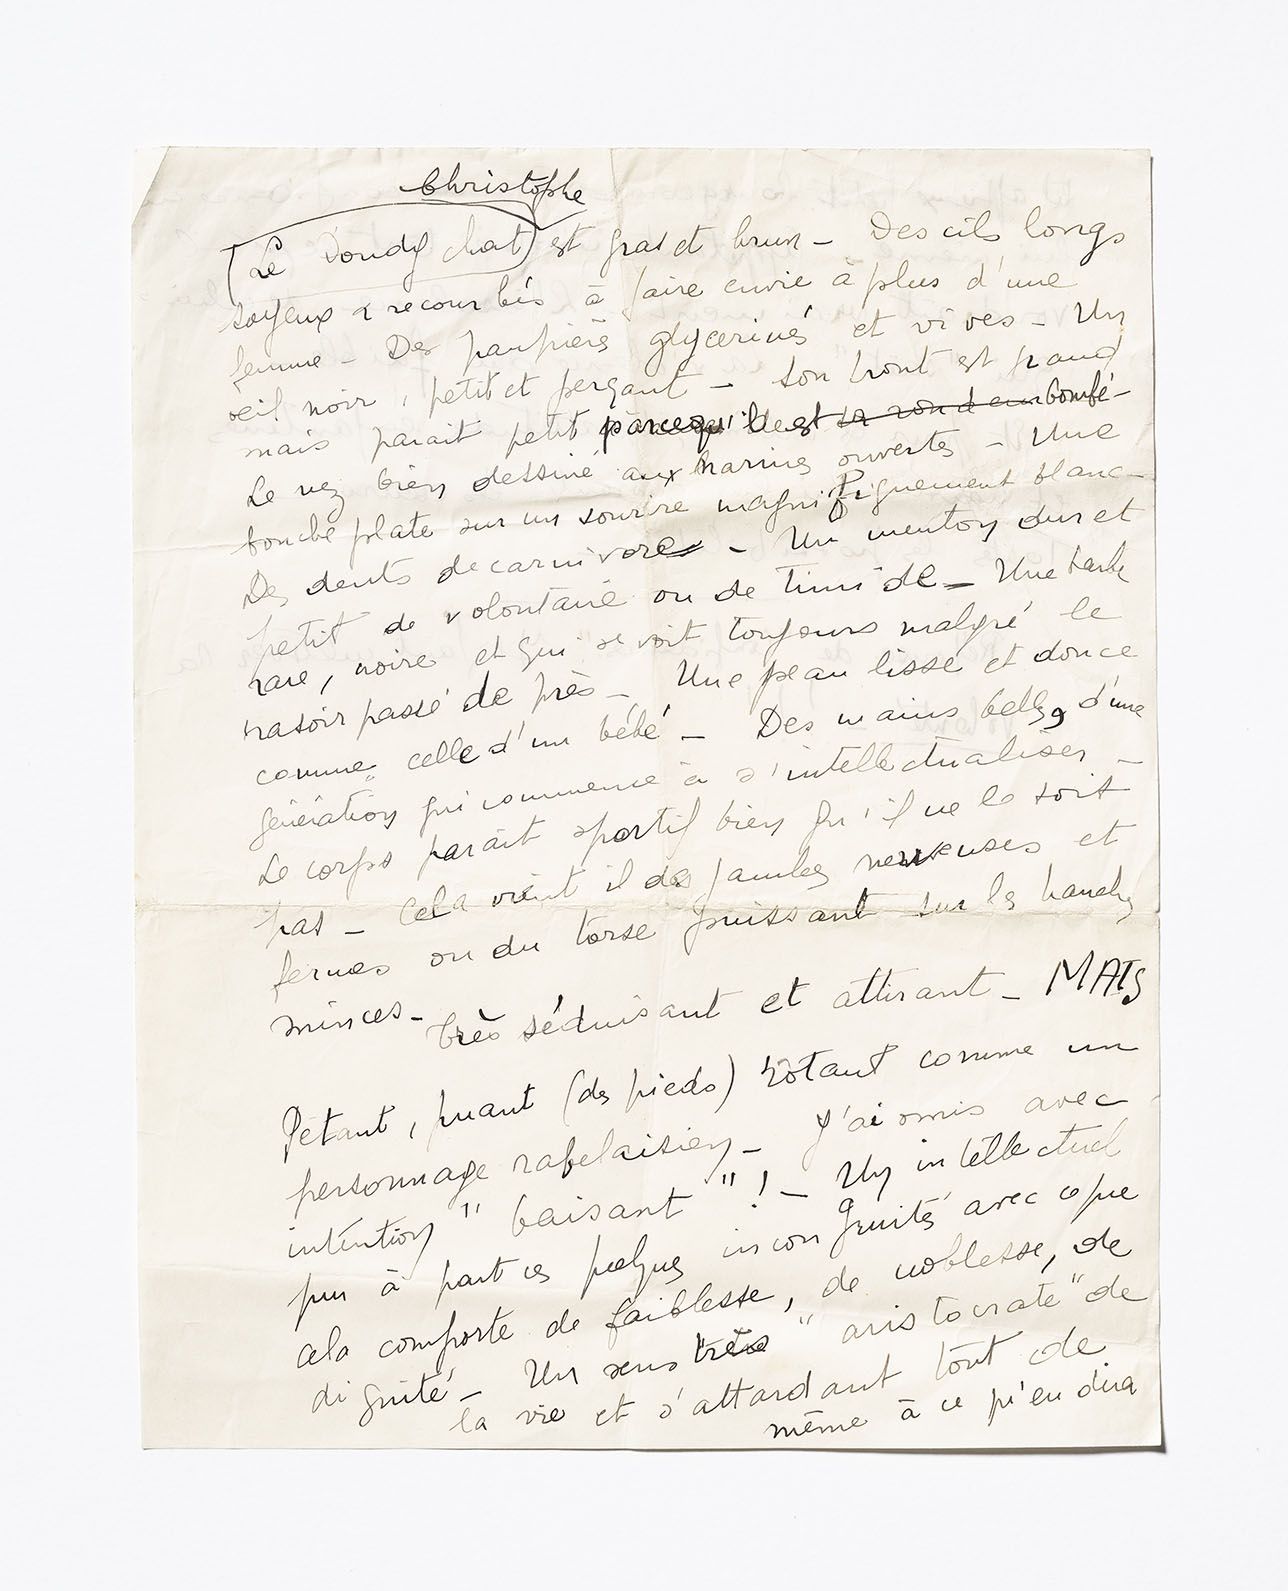 Christophe
(Le Doudy chat) est gras et brun – Des cils longs
soyeux & recourbés à faire envie à plus d'une
femme – Des paupières glycerinés et vives – Un
oeil noir, petit et perçant – Son front est grand
mais parait petit parcequ'il est si rond em bombé –
Le nez bien dessiné aux narines ouvertes – Une
bouche plate sur un sourire magnifiquement blanc –
Des dents de carnivore – Un menton dur et
petit de volontaire ou de timide – Une barbe
rare, noire et qui se voit toujours malgré le
rasoir passé de près – Une peau lisse et douce
comme celle d'un bébé – Des mains belles, d'une
génération qui commence à s'intellectualiser –
Le corps parait sportif bien qu'il ne le soit
pas – Cela vient il des jambes nerveuses et
fermes ou du torse puissant sur les hanches
minces – Très séduisant et attirant – MAIS
Pétant, puant (des pieds) rotant comme un
personnage rabelaisien – J'ai omis avec
intention "baisant"! – Un intellectuel
pur à part ces quelques incongruités avec ce que
cela comporte de faiblesse, de noblesse, de
dignité – Un sens très "aristocrate" de
la vie et s'attardant tout de
même à ce qu'en dira